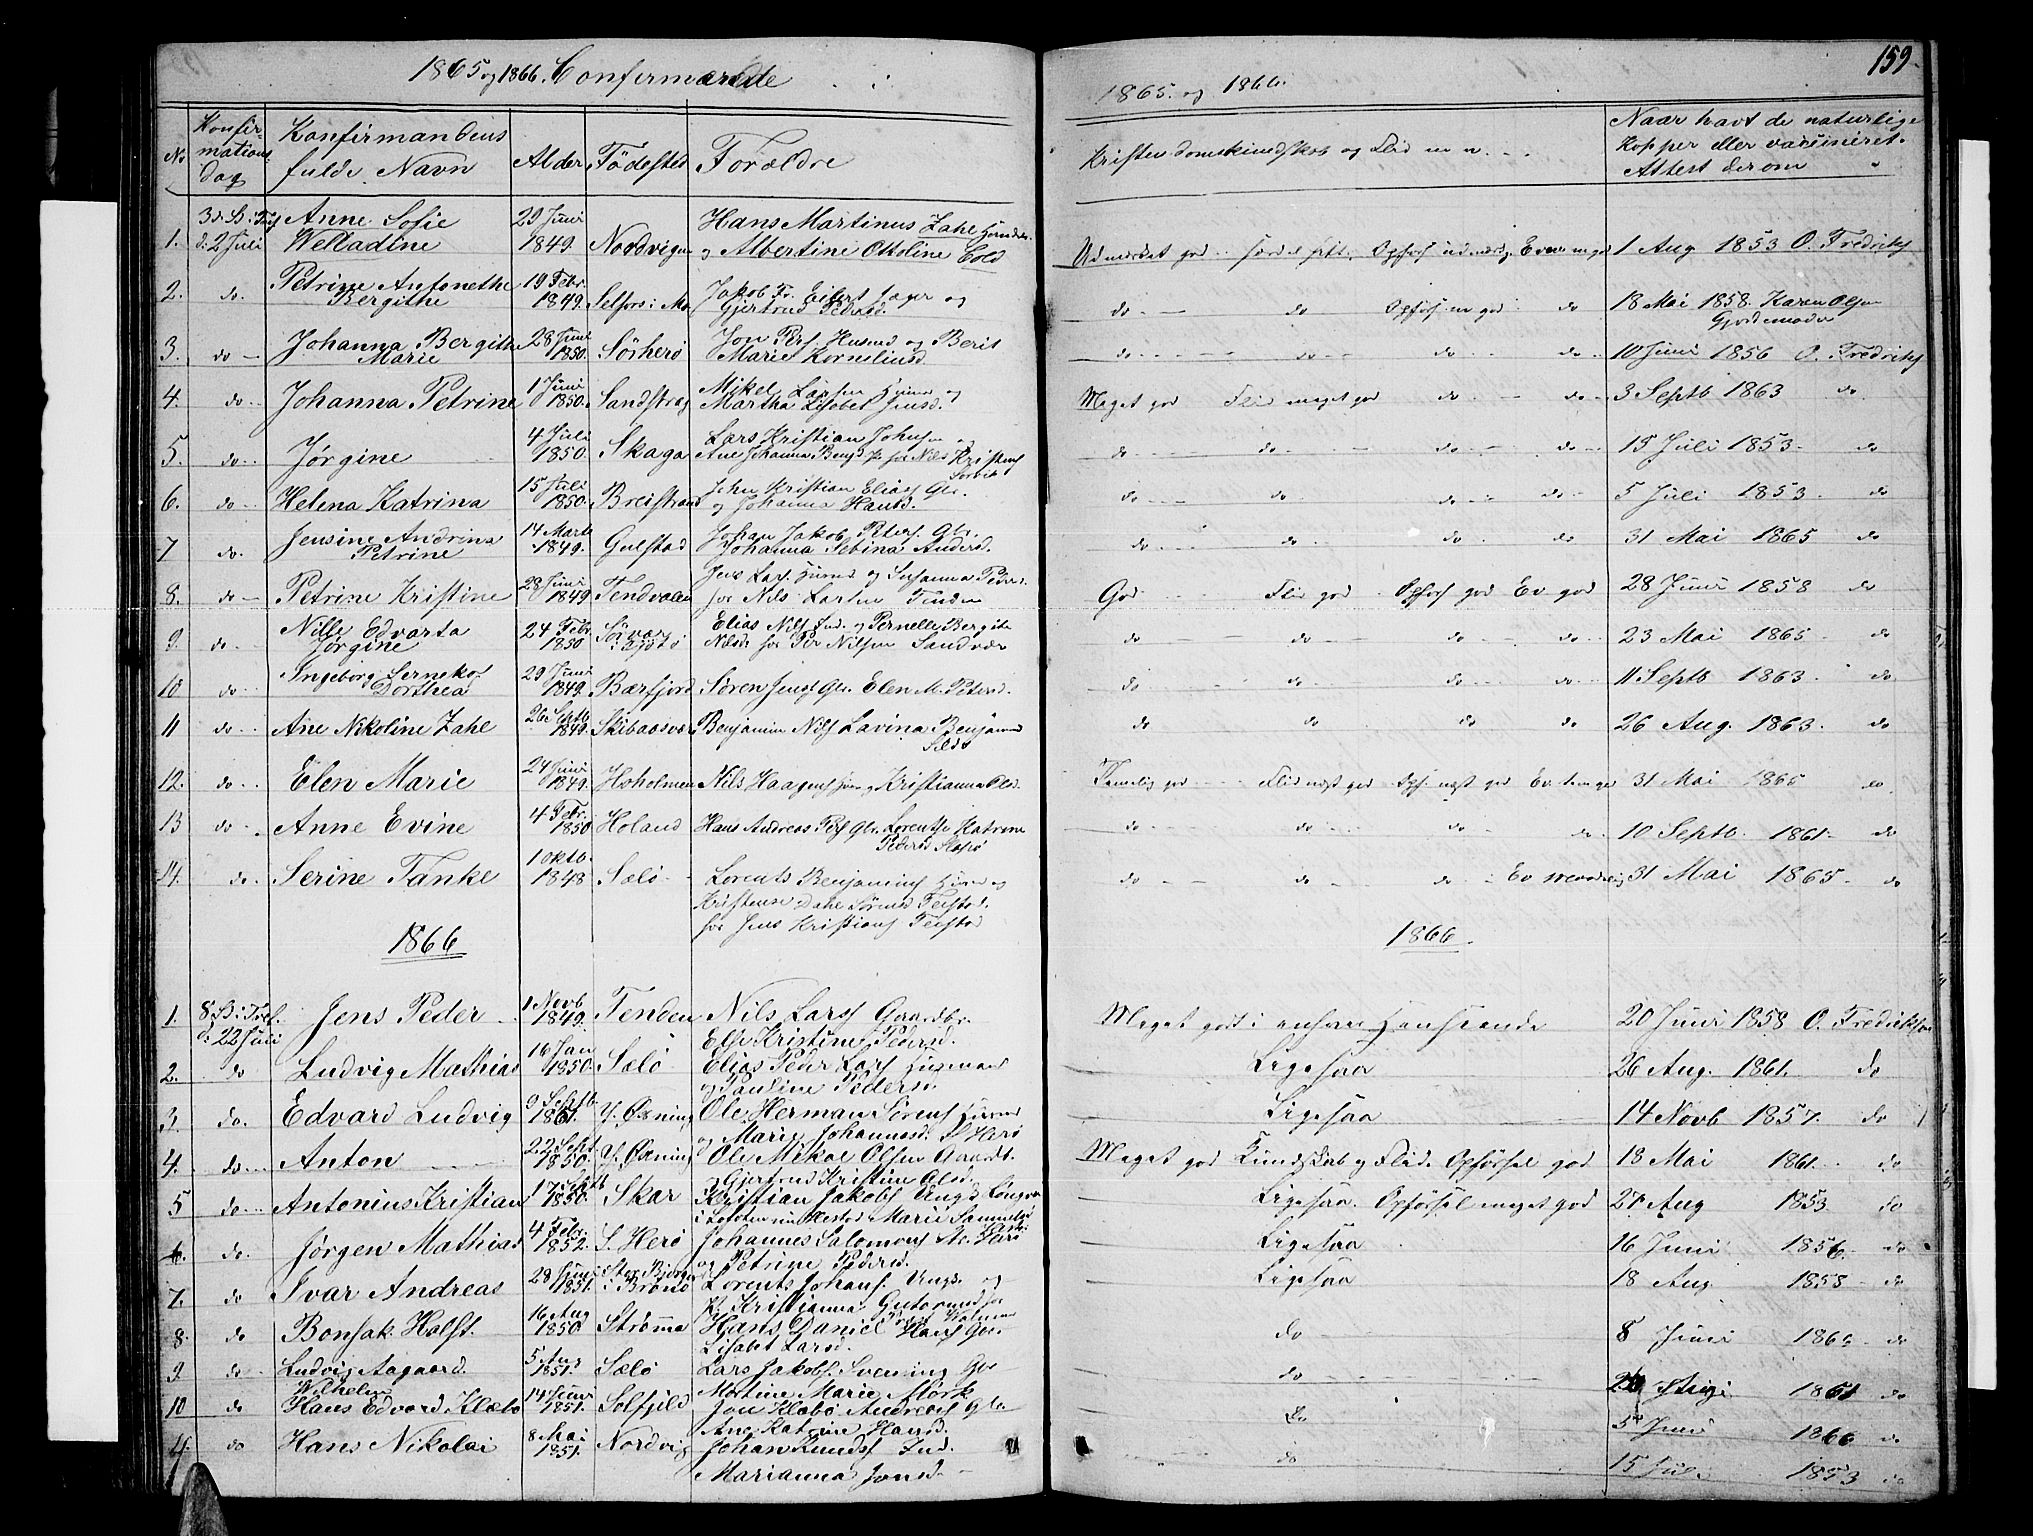 1865 og 1866. Confirmerede
No
Konfir-
mations
dag
Konfirmandens
fulde Navn
Alder
Födested
Forældre
1. d. 2 Juli Anne Sofie Welladine 29 Juni 1849. Nordvigen Hans Martinus Zahl
og Albertine Ottoline Cold
2. do. Petrine Antonethe Bergithe 19 Febr. 1849. Selfors i Mo Jakob Fr. Eilert Jager og
Gjertrud Pedersd.
3. do Johanna Bergithe Marie 28 Juni 1850. Sørherø Jon Pers. Husmd og Berit
Marie Korneliusd.
4. do Johanna Petrine 1 Juni 1850. Sandstrag Mikel Larsen og
Martha Lisobet Jensd.
5. do Jørgine 4 Juli 1850. Skaga Lars Kristian Johnsen og
Ane Johanna Bensd. for Nils Kristens
6. do Helena Katrina 15 Juli 1850. Breistrand John Kristian Elias
og Johanna Hansd.
7 do. Jensine Andrina Petrine 14 Marts 1849. Gulstad Johan Jakob Peters.
Johanna Sebina Andersd.
8. do Petrine Kristine 28 Juni 1849 Tendvalen Jens Lars. og Susanna Pedersd.
for Nils Larsen Tenden
9. do Nille Edvarta Jørgine 24 Febr 1850 Sörvær Elias Nils Ind. og Pernelle Bergite
Nilsd. for Per Nilsen Sandvær
10 do Ingeborg Dorthea 29 Juni 1849. Bærfjord Sören Jens Elen M. Petersd.
11 do. Ane Nikoline Zahl 26 Septb 1849. Benjamin Nils Lavina Benjamins
12. do Elen Marie 24 Juni 1849. Hoholmen Nils Haagens og Kristianna Olsd.
13 do Anne Evine 4 Febr. 1850 Høland Hans Andreas Pers Lorentse Katrine
Pedersd
14. do. Serine Tanke 1 Oktb. 1848 Sælø Lorents Benjamins og
Kristense Dahl Sørensd Teistad.
for Jens Kristians Teistad
1866
1. d. 22 Juni Jens Peder 1 Novb 1849. Tenden Nils Lars Gaardbr.
Else Kristine Pedersd.
2. do Ludvig Mathias 16 Jan 1850. Sælø Elias Peder Lars Husmand
og Pauline Pedersd.
3. do. Edvard Ludvig 9 Septb Y. Øxning Ole Herman Sørens
og Marie Johannesd. S Herø
4. do Anton 22 Sept. 1850. Y. Øxning Ole Mikal Olsen Gaardb.
og Gjertrud Kristine Olsd.
5 do Antonius Kristian 17 Septb 1850. Skar Kristian Jakobs Ungk.
i Lofoten Marie Samuelsd
6. do. Jørgen Mathias 4 Febr. 1852. S. Herø Johannes Salomons S. Herø
og Petrine Pedersd.
7. do Ivar Andreas 28 Juni 1851. i Brønø Lorents Johans. Ungk. og
P. Kristianna
8. do Bonsak Halst. 16 Aug 1850 Strømma Hans Daniel Hans
Lisabet Larsd.
9. do Ludvig Aagaard 5 Aug 1851. Sælø Lars Jakobs. Svenning
Martine Marie Mörk
10 do Wilhelm
Hans Edvard Klæbo 14 Juni 1851. Solfjeld Jon Klæbo Andreas
Ane Katrine Hansd.
11. do Hans Nikolai 8 Mai 1851. Nordvig Johan Knuds Ind.
Marianna Jonsd.
159.
1865. og 1866.
Kristendomskundskab og Flid m m
Naar havt de naturlige
Kopper eller vaccineret.
Attest derom
Udmærket god 1 Aug 1853 O. Fredriks
do do Opförs. m god do 18 Mai 1858. Karen Olsen
Gjordemoder
do do do do 10 Juni 1856 O. Fredriks
Meget god Flid meget god do do 3 Septb 1863 do
do do do do 15 Juli 1853. do
do do do do 5 Juli 1853. do
do do do do 31 Mai 1865 do
God Flid god Opförs god Ev god 28 Juni 1858 do
do do do do 23 Mai 1865. do
do do do do 11 Septb 1863. do
do do do do 26 Aug. 1863. do
Temelig god Flid megt god Opf. megt god Ev. tem god 31 Mai 1865 do
do do do do. 10 Septb. 1861. do
do do do Ev 31 Mai 1865. do
1866.
Meget godt i enhver Henseende 20 Juni 1858 O. Fredriksen
Ligesaa 26 Aug. 1861. do
Ligesaa 14 Novb 1857. do
Meget god Kundskab og Flid. Opförsel god 13 Mai 1861. do
Ligesaa. Opförsel meget god 27 Aug 1853 do
Ligesaa 16 Juni 1856. do
Ligesaa 18 Aug. 1858 do
do 8 Juni do
do 1861 do
do 5 Juni 1866 do
do 15 Juli 1853 do